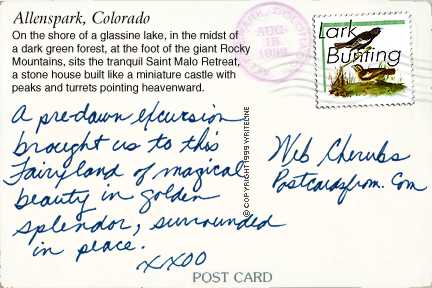 Allenspark, Colorado
On the shore of a glassine lake, in the midst of
a dark green forest, at the foot of the giant Rocky
Mountains, sits the tranquil Saint Malo Retreat,
a stone house built like a miniature castle with
peaks and turrets pointing heavenward.
A pre-dawn excursion
brought us to this
Fairyland of magical
beauty in golden
splendor, surrounded
in peace.
XXOO
© COPYRIGHT 1999 WRITELINE
AUG
15
1999
Lark
Bunting
Web Cherubs
Postcardsfrom.Com
POST CARD